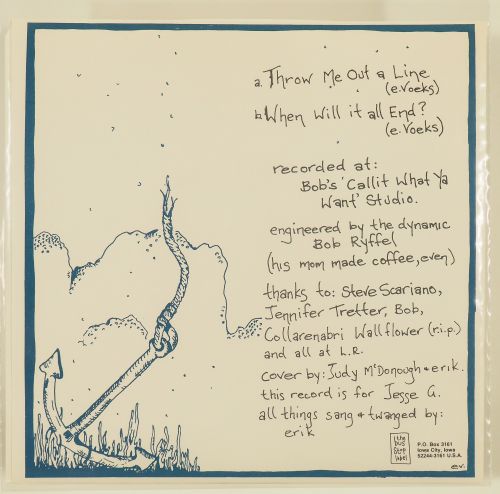 a. Throw Me Out a Line
(e. Voeks)
b. When Will it all End?
(e. Voeks)
recorded at:
Bob's 'Callit What Ya
Want' Studio.
engineered by the dynamic
Bob Ryffel
(his mom made coffee, even)
thanks to: Steve Scariano,
Jennifer Tretter, Bob,
Collarenabri Wallflower (r.i.p.)
and all at L.R.
cover by: Judy McDonough & erik.
this record is for Jesse G.
all things sang & twanged by:
erik
the
bus
stop
label
P.O. Box 3161
Iowa City, Iowa
52244-3161 U.S.A.
e.v.